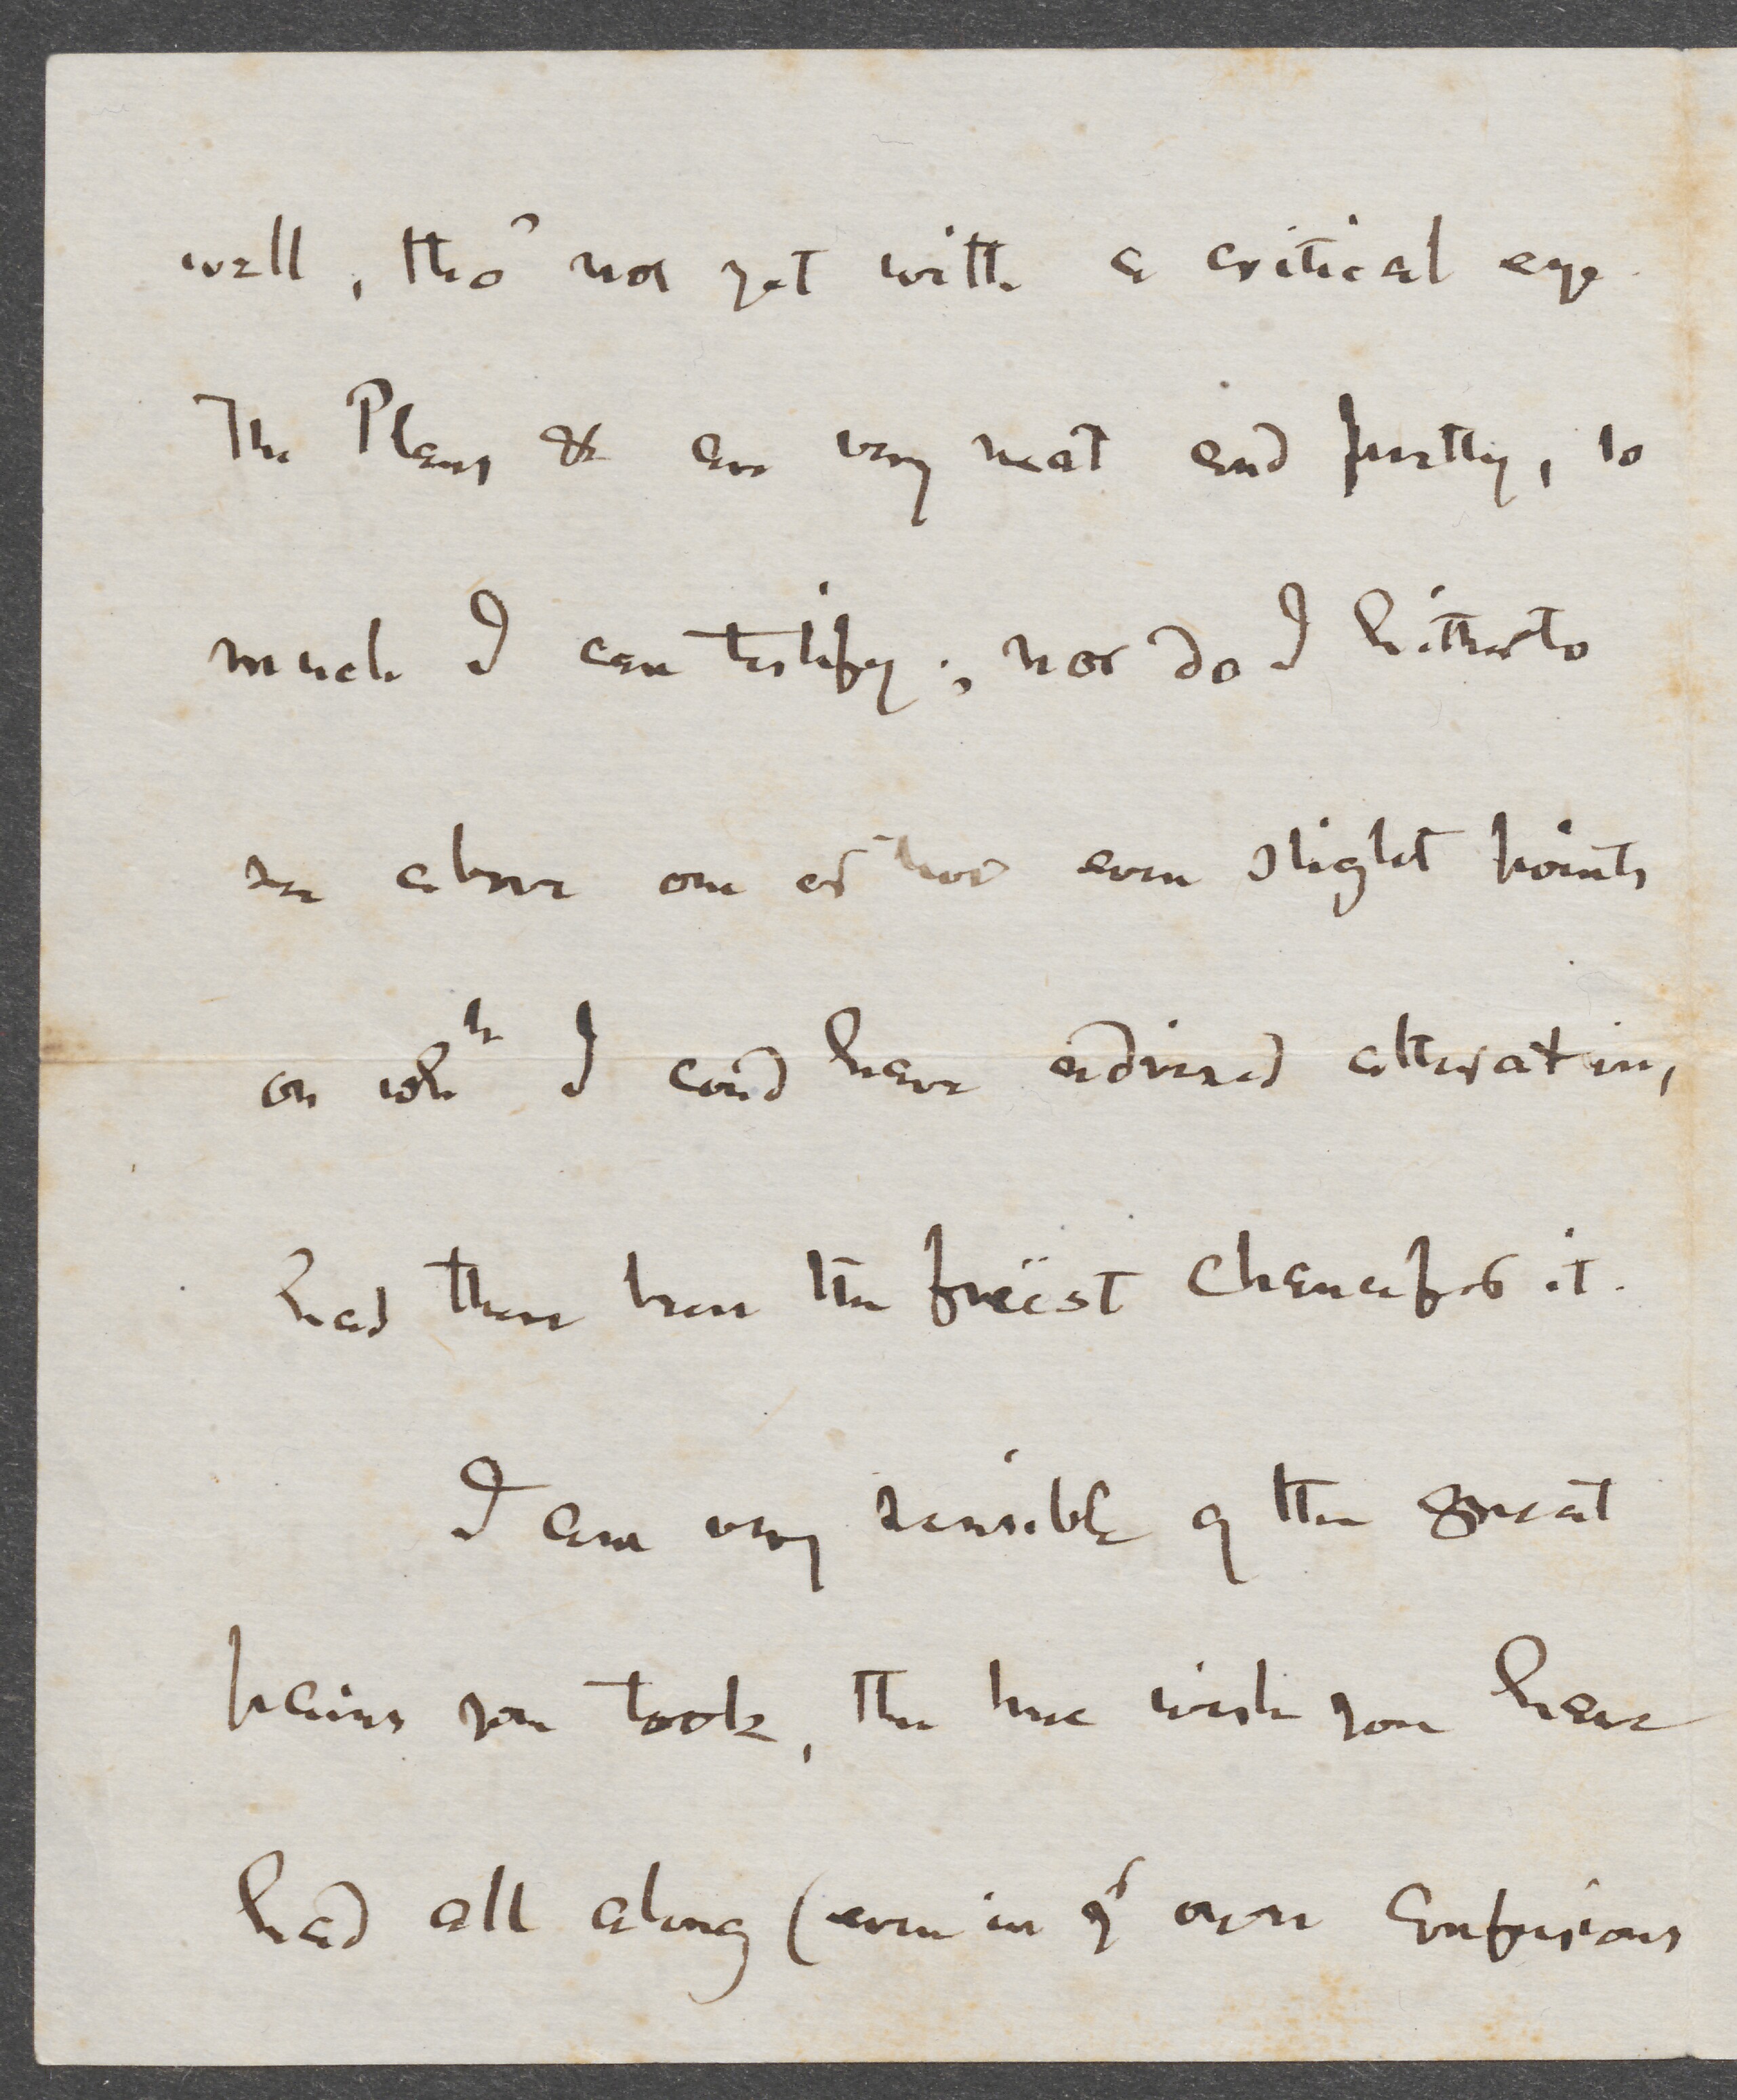 well, tho' not yet with a critical eye.
The Plans &c are very neat and pretty, so
much I can testify; nor do I hitherto
see above one or two even slight points
on whh I coud have advised alteration,
had there been the freëst chance for it.
I am very sensible of the great
pains you took, the true wish you have
had all along (even in yr own Confusions